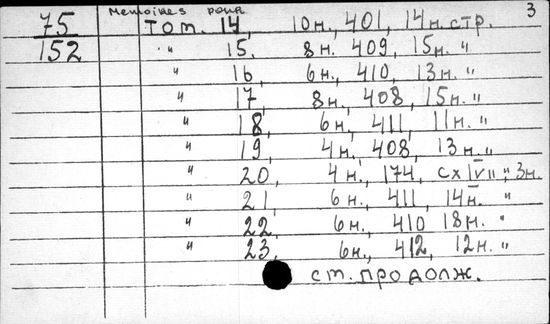 75 Memoires pour 3
152 Том. 14, 10н., 401, 14н. стр.
" 15, 8н. 409, 15н. "
" 16, 6н., 410, 13н. "
" 17, 8н., 408, 15н. "
" 18, 6н., 411, 11н. "
" 19, 4н., 408, 13н. "
" 20, 4н., 174, 3н.
" 21, 6н., 411, 14н. "
" 22, 6н., 410 18н. "
" 23, 6н., 412, 12н. "
см. продолж.